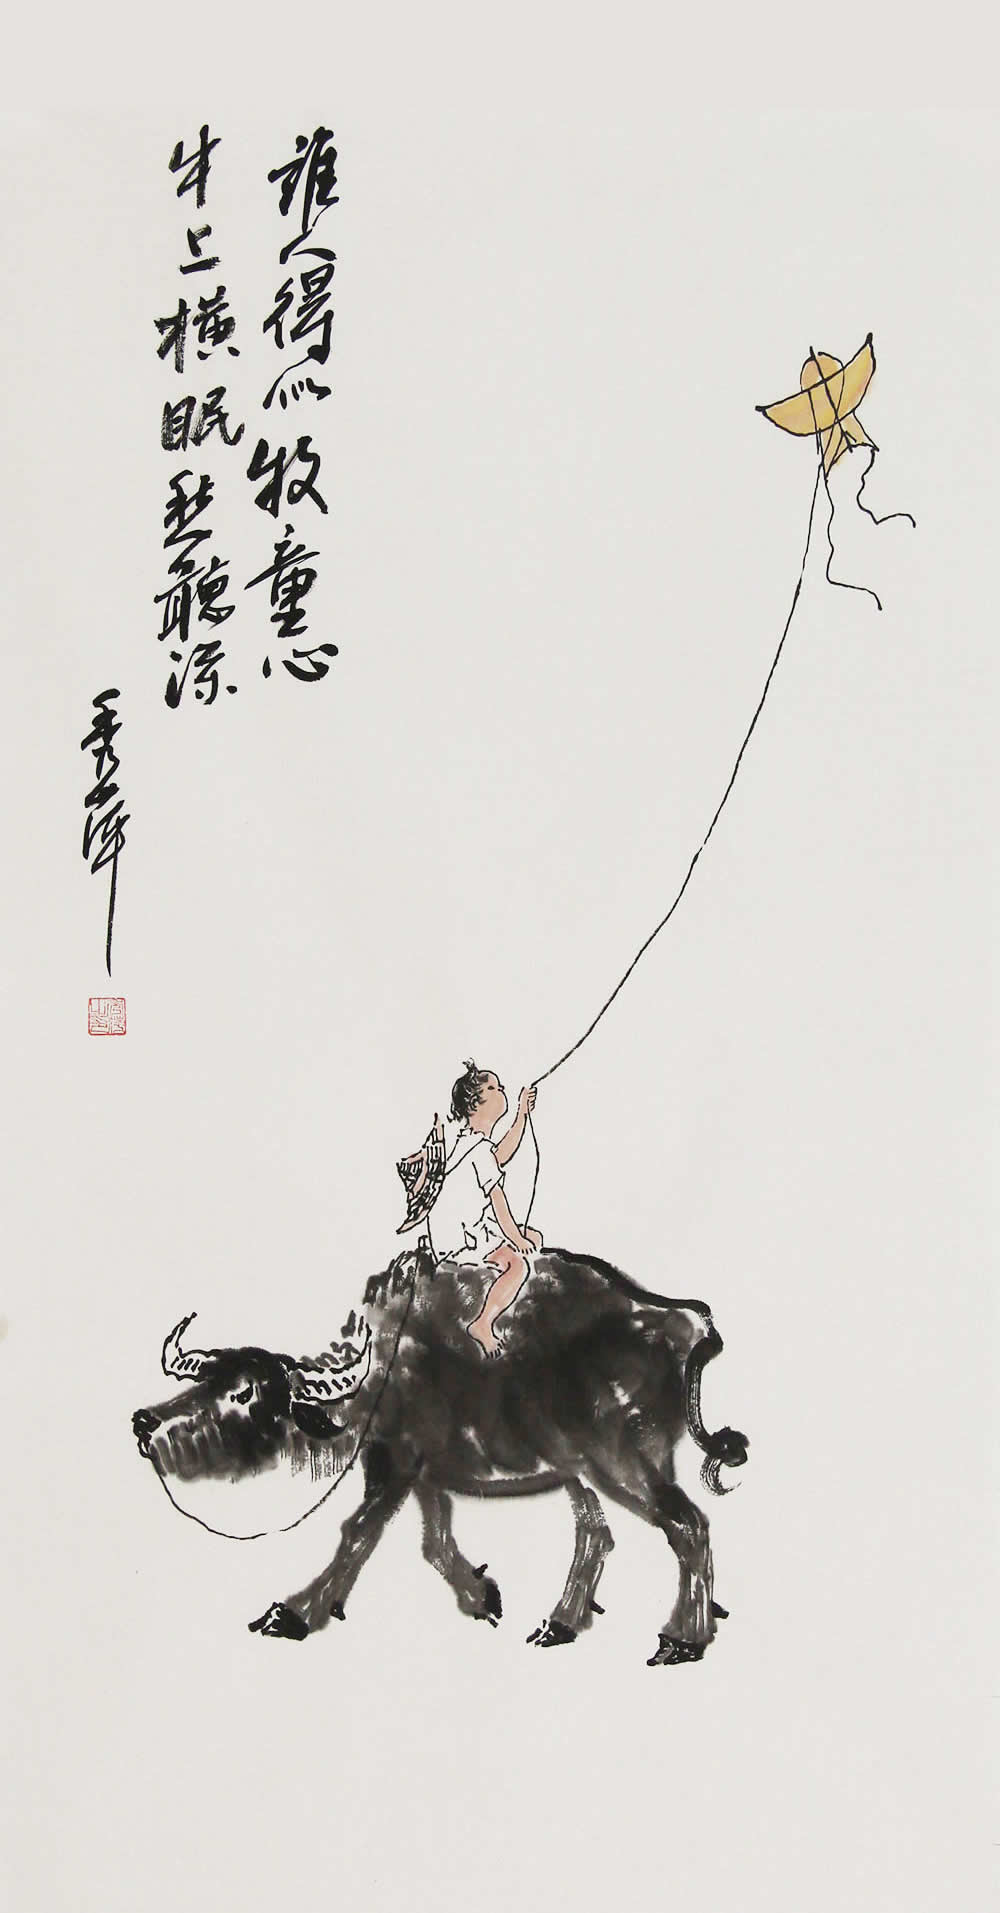 誰人得似牧童心
牛上橫眠秋聽深